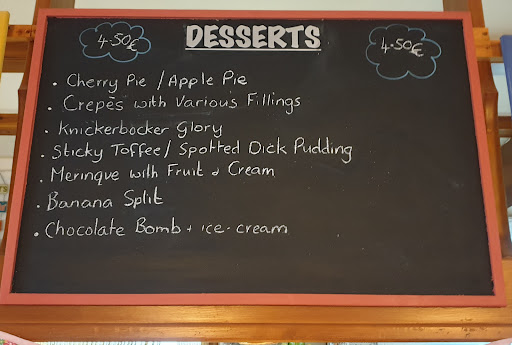 4.50€ DESSERTS 4.50€
. Cherry Pie / Apple Pie
. Crepes with Various Fillings
. Knickerbocker Glory
. Sticky Toffee / Spotted Dick Pudding
. Meringue with Fruit & Cream
. Banana Split
. Chocolate Bomb + ice-cream